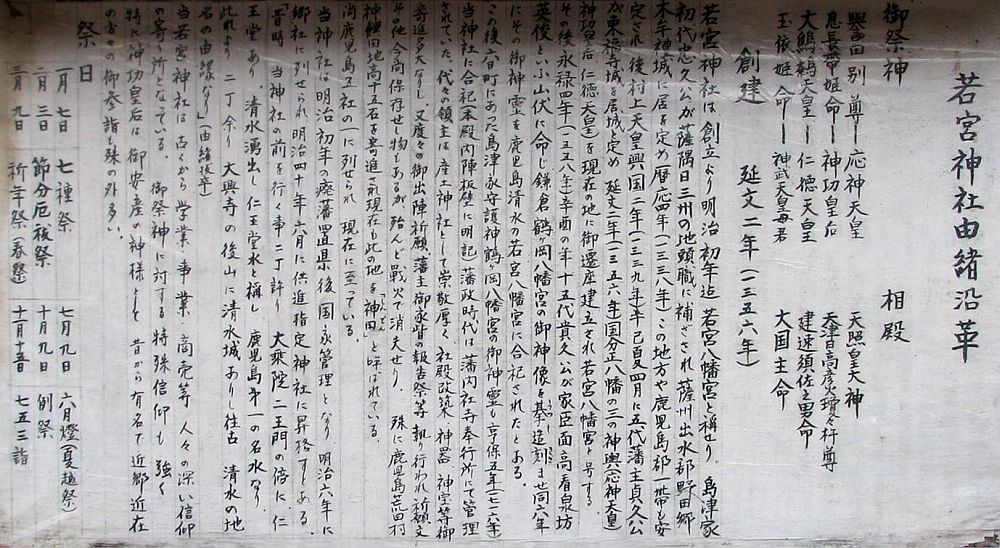 若宮神社由緒沿革
御祭神
誉田別尊―応神天皇
息長帯姫命―神功皇后
大鷦鷯天皇―仁徳天皇
玉依姫命―神武天皇母君
相殿
天照皇大神
天津日高彦穂々瓊々杵尊
建速須佐之男命
大国主命
創建 延文二年(一三五六年)
若宮神社は、創立より明治初年迄若宮八幡宮と称せり、島津家
初代忠久公が薩隅日三州の地頭職に補され薩州出水郡野田郷
木牟礼城に居を定め暦応四年(一三三八年)この地方や鹿児島郡一帯も安
定され後村上天皇興国二年(一三三九年)辛巳夏四月に五代藩主貞久公
が東福寺城を居城と定め 延文二年(一三五六年)国分正八幡の三の神輿(応神天皇)
神功皇后 仁徳天皇)を現在の地に御遷座建立され若宮八幡宮と号する
その後永禄四年(一五五八年)辛酉の年十五代貴久公が家臣面高看泉坊
英俊という山伏に命じ鎌倉鶴ヶ岡八幡宮の御神像を摹造刻ませ同六年
にその御神霊を鹿児島清水の若宮八幡宮に合祀されたとある。
この後六日町にあった島津永守護神鶴ヶ岡八幡宮の御神霊も享保五年(七二〇年)
当神社に合祀(本殿内陣板壁に明記)藩政時代は藩内社寺奉行所にて管理
されていた、代々の領主は産土神社として崇敬厚く、社殿改築、神器、神宝等御
寄進多大なりし、又度々の御出陣祈願、藩主御家督の報告祭等執り行われ祈願文
その他今尚保存せし物もあるが殆んど戦火で消失せり 殊に鹿児島荒田村
神領田地高十五石を寄進され現在も此の地を神田(しんでん)と呼ばれている。
尚鹿児島五社の一に列せられ 現在に至っている。
当神社は、明治初年の廃藩置県後国家管理となり 明治六年に
郷社に列せられ明治四十年六月に供進指定神社に昇格すとある。
「昔時、当神社の前を行く事二丁許り 大乗院二王門の傍に、仁
王堂あり、清水湧出し 仁王堂水と称し 鹿児島第一の名水なり
此れより 二丁余り 大興寺の後山に清水城ありし往古 清水の地
名の由縁なり」(由緒抜萃)
当若宮神社は 古くから 学業 事業 商売等 人々の深い信仰
の寄り所となっている。 御祭神に対する特殊信仰も 強く
特に神功皇后は 御安産の神様として 昔から有名で近郷近在
の方々の御参詣も殊の外多い。
祭日
一月七日 七種祭 七月九日 六月燈(夏越祭)
二月三日 節分厄祓祭 十月九日 例祭
三月九日 祈年祭(春祭) 十一月十五日 七五三詣